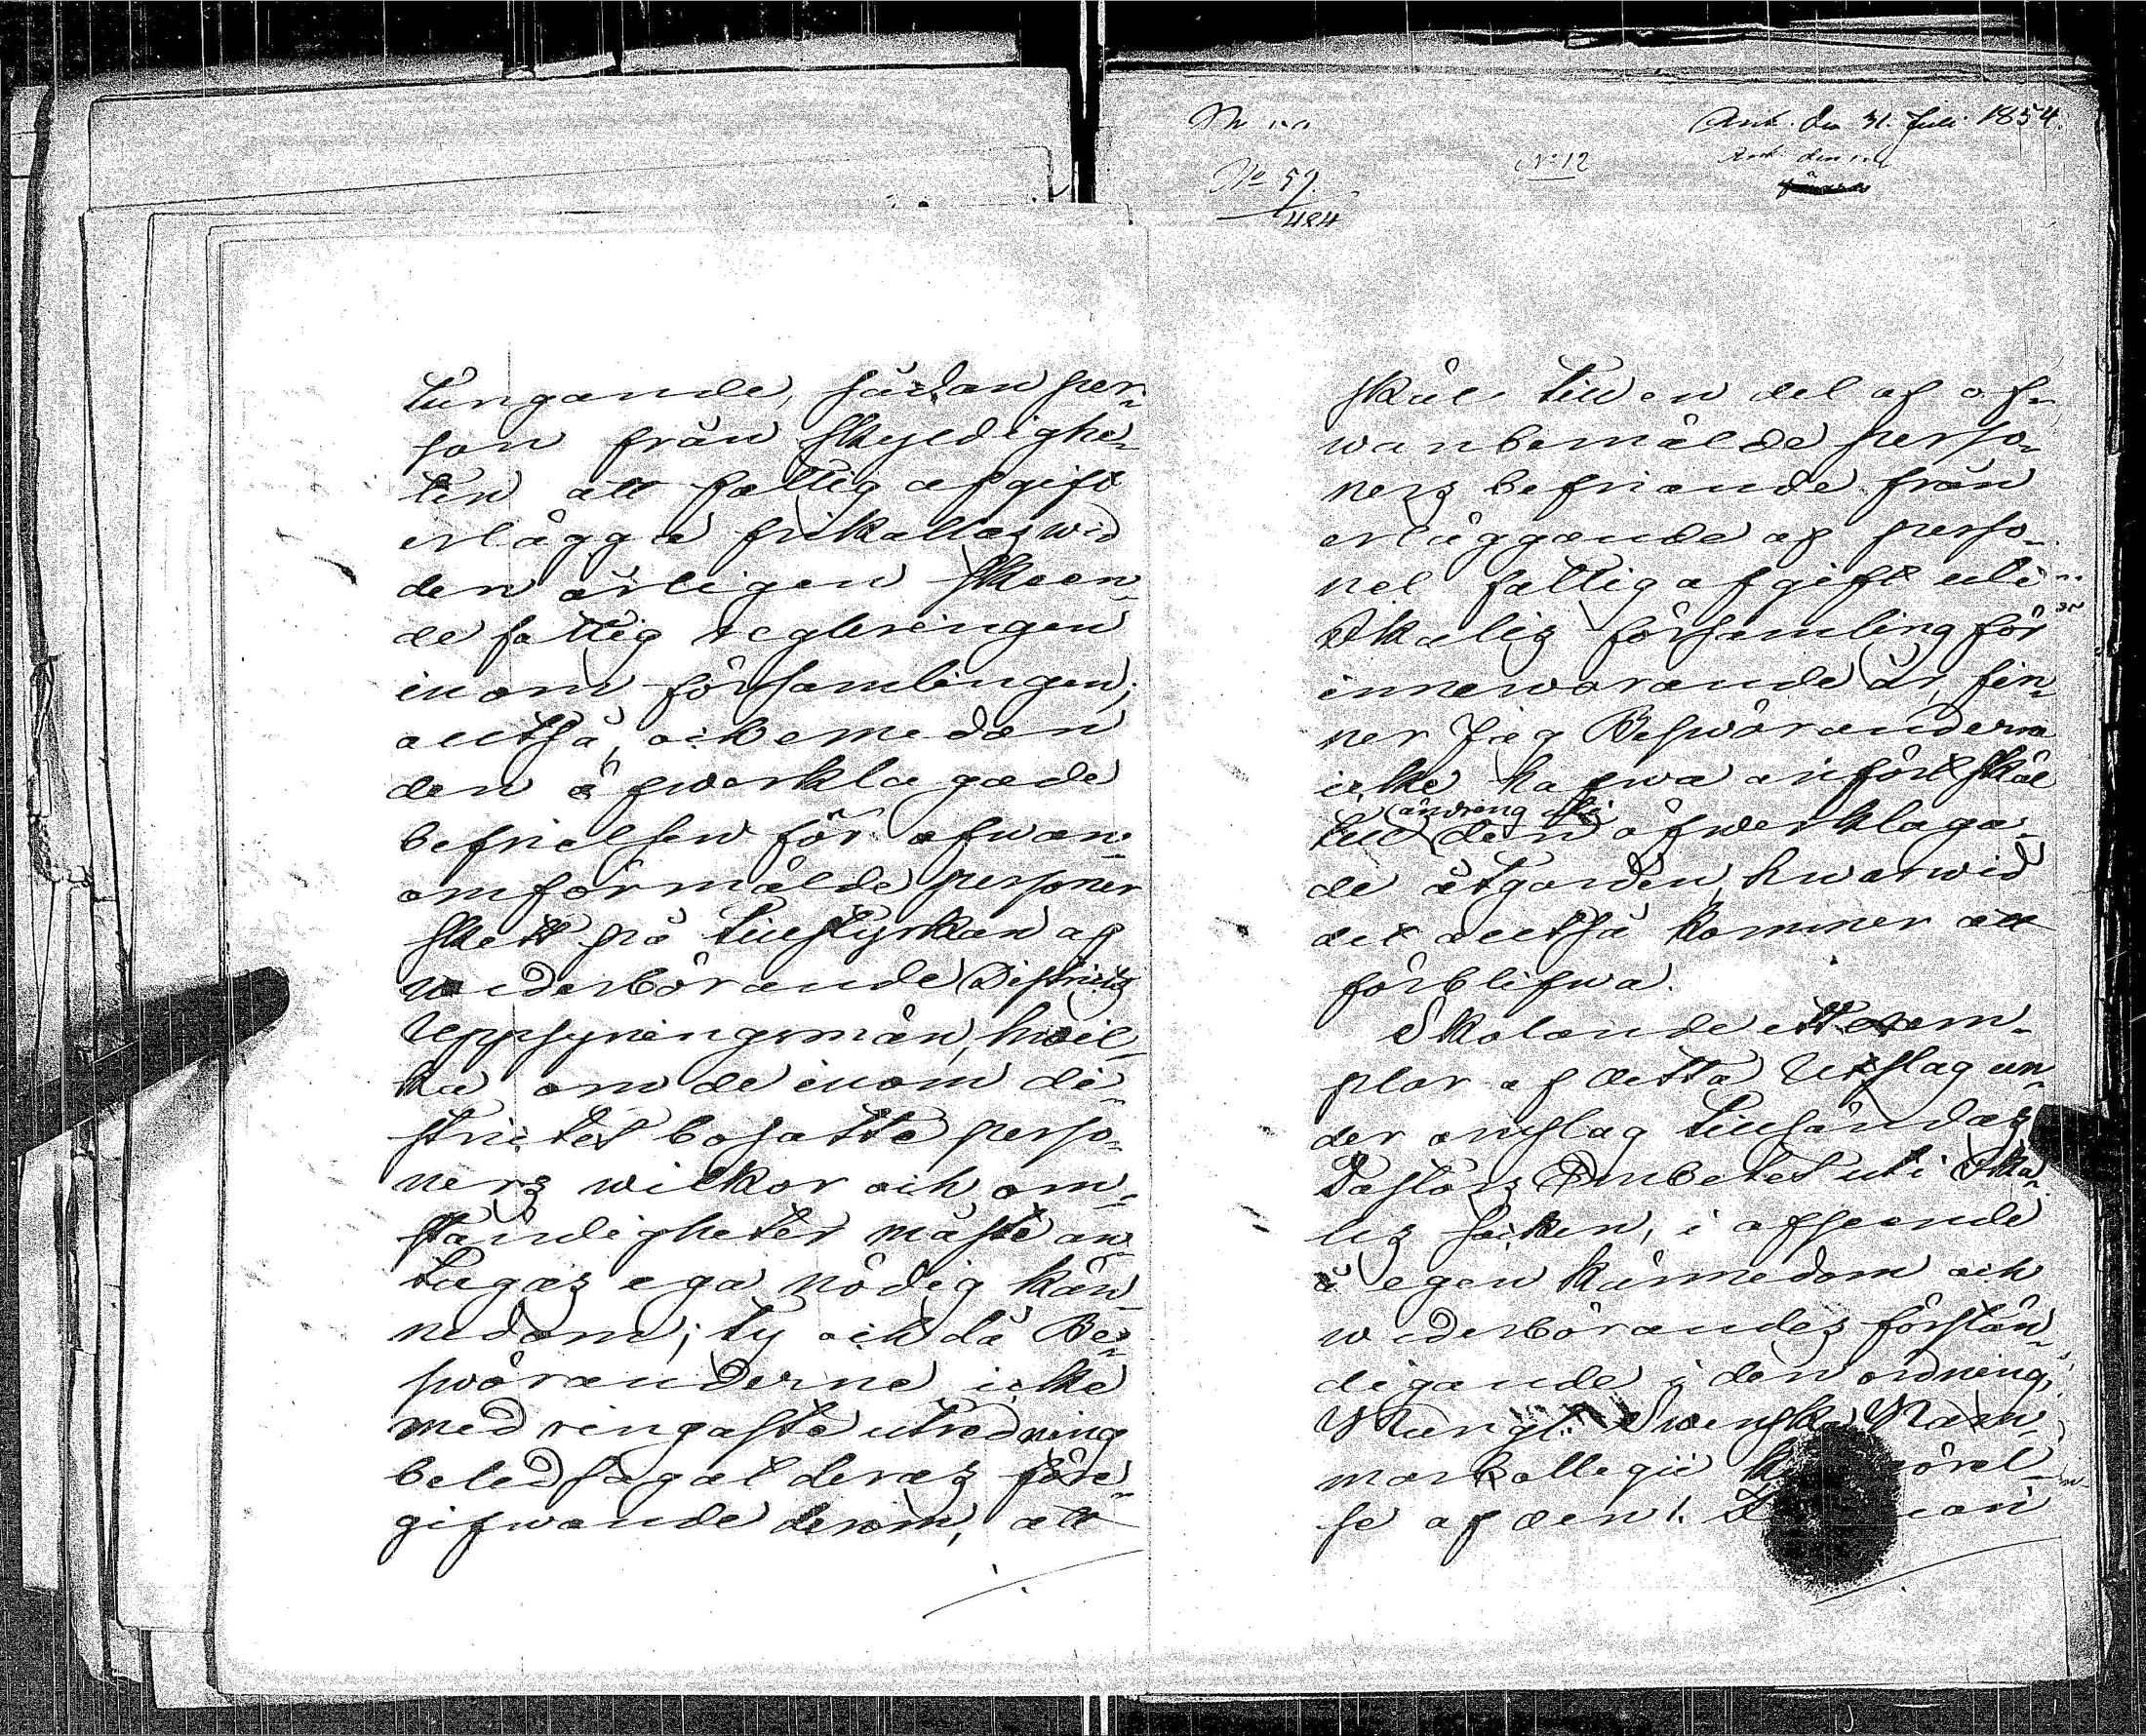 tungande, sådan per-
son från skyldighe-
ten att fattig afgift
erlägga frikallas wid
den årligen skeen-
de fattig regleringen
inom församlingen;
alltså, och emedan
den öfwerklagade
befrielsen för ofwan-
omförmälde personer
skett på tillstyrkan af
wederbörande Districts
Uppsyningsmän, hwil-
ka om de inom di-
strictet bosatte perso-
ners wilkor och om-
ständigheter måste an-
tagas ega nödig kän-
nedom; ty och då Be-
swäranderne icke
med ringaste utredning
beledsagat deras före-
gifwande derom, att
Ank. den 31. Juli 1854.
No 12
No 59
484
skäl till en del af of-
wanbemälde perso-
ners befriande från
erläggande af perso-
nel fattigafgift uti
Ikalis församling för
innewarande år, fin-
ner Jag Beswäranderna
icke hafwa anfört skäl
ändring i
till den öfwerklaga-
de åtgärden, hwarwid
det alltså kommer att
förblifwa.
Skolande ett exem-
plar af detta Utslag un-
der anslag tillsändas
Pastors Embetet uti Ika-
lis socken, i afseende
å egen kännedom och
wederbörandes förstän-
digande i den ordning,
Kungl. Swenska Kam-
markollegii
se af den 1.